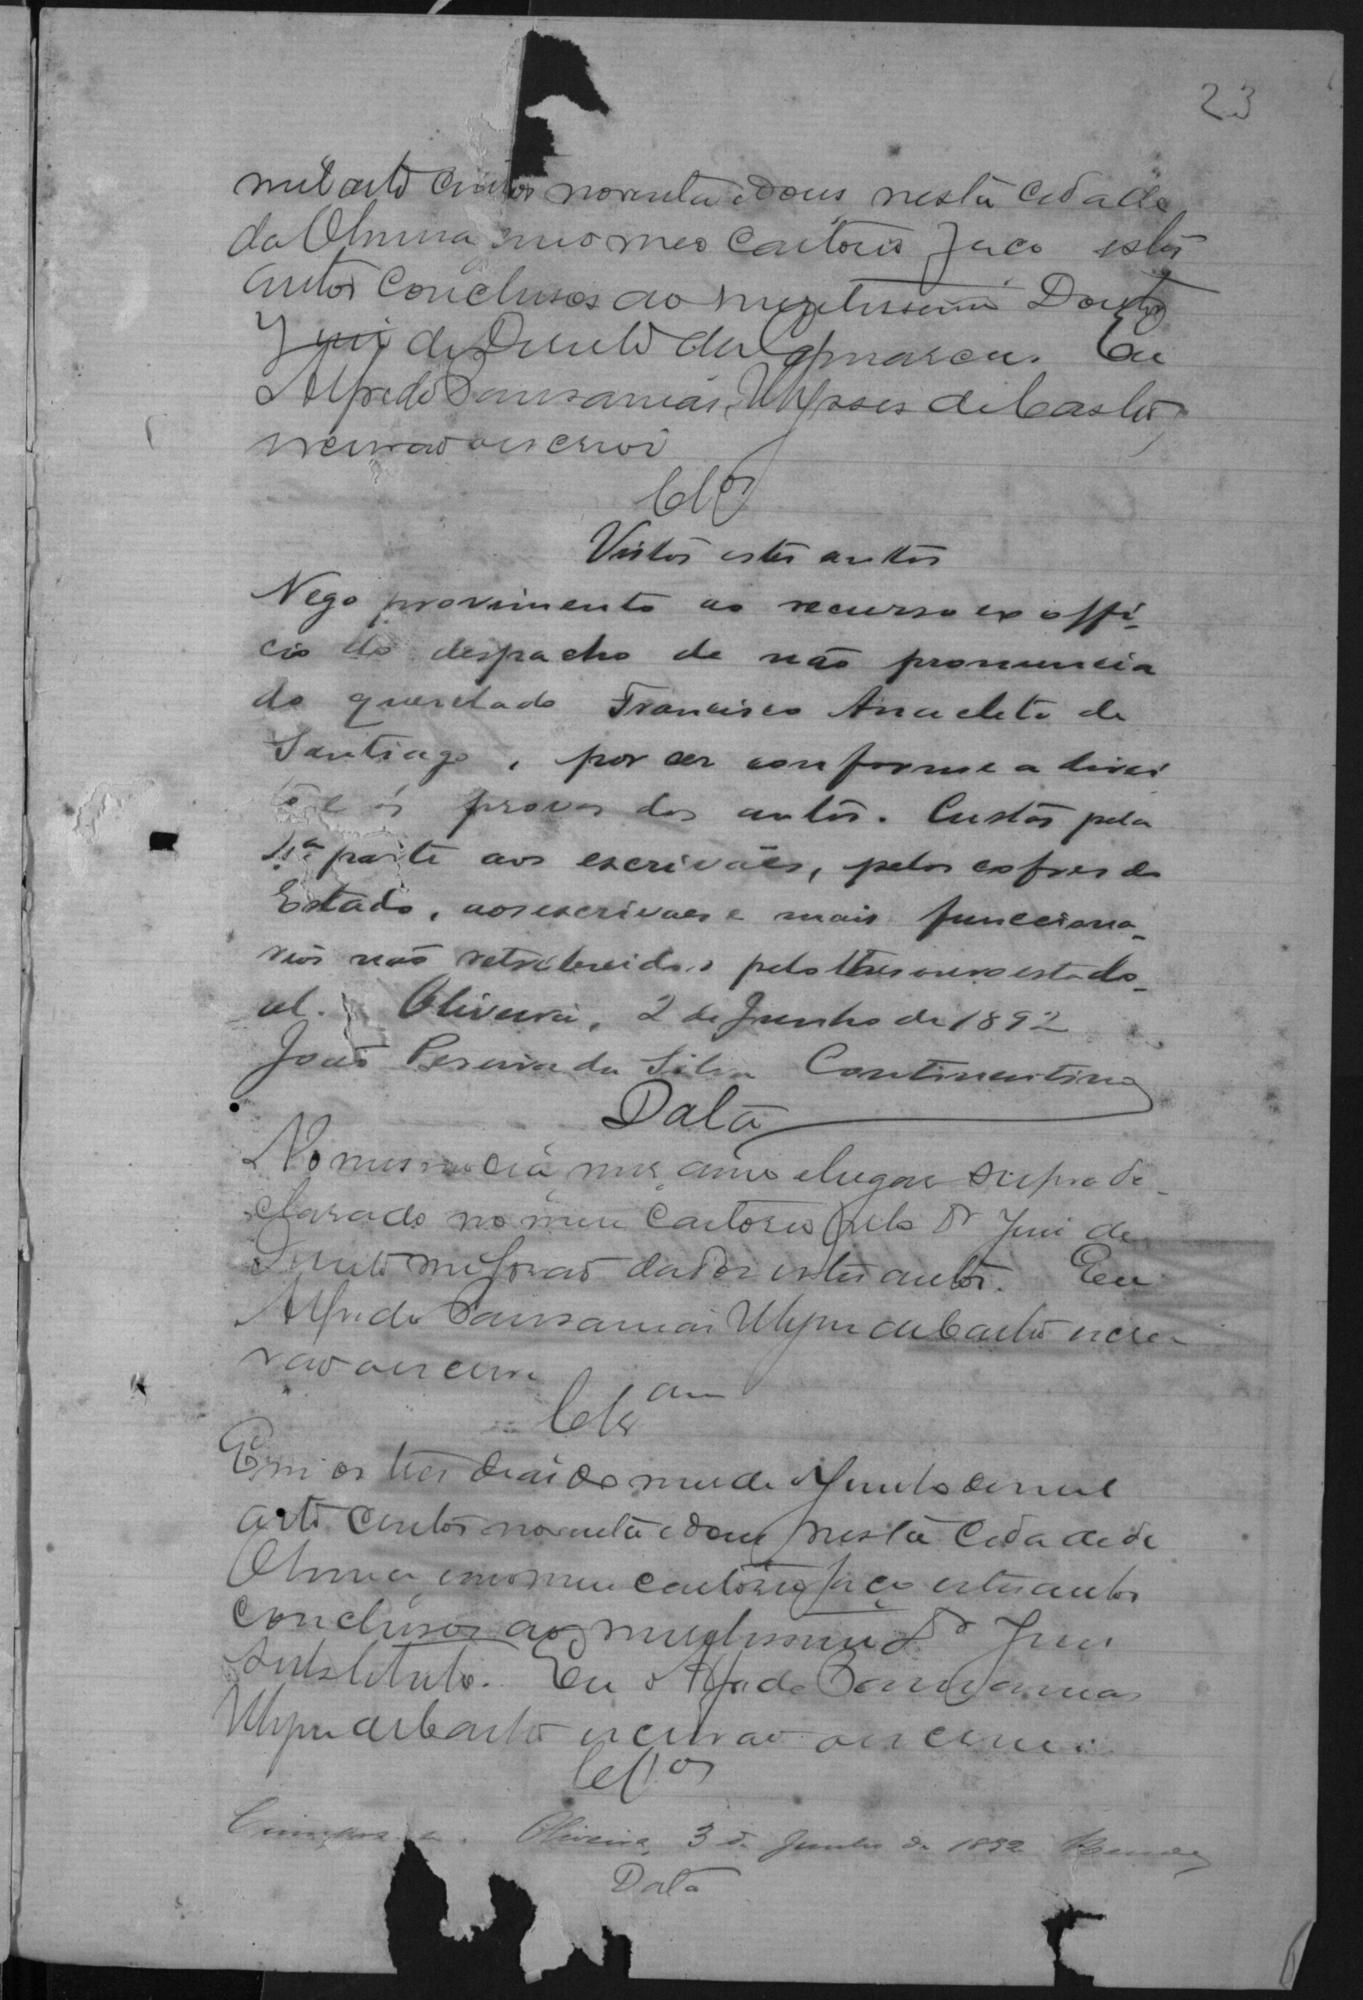 23
mil oito centos noventa e dous nesta cidade
da Oliveira em o meo cartorio faço estes
autos conclusos ao meretissimo Doutor
Juiz de Direito da Comarca. Eu
Alfredo Pausanias Ulysses de Castro,
escrivão o escrevi
Clos
Vistos estes autos
Nego provimento ao recurso ex offi-
cio do despacho de não pronuncia
do querelado Francisco Anacleto de
Santiago, por ser conforme a direi
to e ás provas dos autos. Custas pela
4ª parte aos escrivães, pelos cofres do
Estado, aos escrivaes e mais funcciona-
rios não retribuidos pelo thesouro estado-
al. Oliveira, 2 de Junho de 1892
João Pereira da Silva Continentino
Data
No mesmo dia, mes, anno e lugar supra de-
clarado no meu cartorio pelo Dr Juiz de
Direito me forão dados estes autos. Eu
Alfredo Pausanias Ulysses de Castro escri
vão o escrevi
Clsam
Em os tres dias do mes de Junho de mil
oito centos noventa e dous nesta cidade de
Oliveira em o meu cartorio faço estes autos
conclusos ao meretissimo Dr Juiz
substituto. Eu Alfredo Pausanias
Ulysses de Castro escrivão o escrevi.
Clos
Cumpra-se. Oliveira, 3 de Junho de 1892
Data